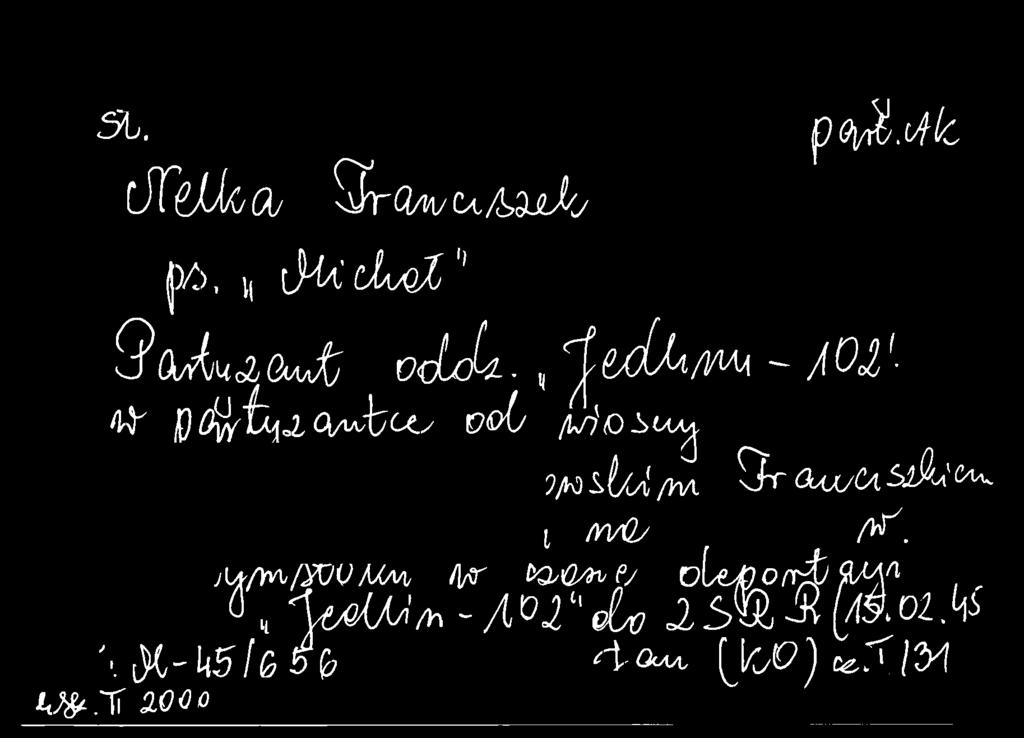 st. part. AK
Nelka Franciszek
ps. „Michał”
Partyzant oddz. „Jedliny - 102!
w partyzantce od wiosny
Franciszkiem
i na w.
w czasie deportacji
„Jedlin - 102" do ZSRR (15.02.45
M-45/656 (KO) cz. I/31
II 2000